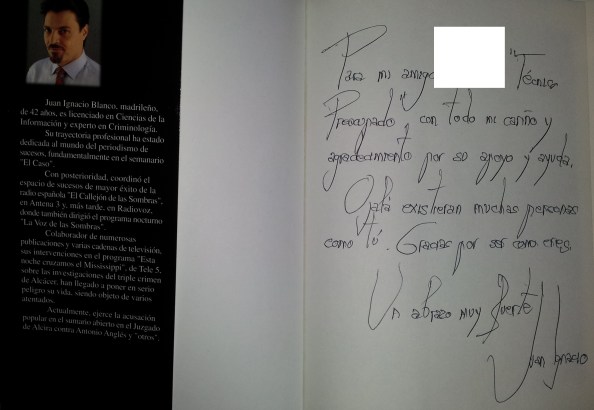 Juan Ignacio Blanco, madrileño,
de 42 años, es licenciado en Ciencias de la
Información y experto en Criminología.
Su trayectoria profesional ha estado
dedicada al mundo del periodismo de
sucesos, fundamentalmente en el semanario
"El Caso".
Con posterioridad, coordinó el
espacio de sucesos de mayor éxito de la
radio española "El Callejón de las Sombras",
en Antena 3 y, más tarde, en Radiovoz,
donde también dirigió el programa nocturno
"La Voz de las Sombras".
Colaborador de numerosas
publicaciones y varias cadenas de televisión,
sus intervenciones en el programa "Esta
noche cruzamos el Mississippi", de Tele 5,
sobre las investigaciones del triple crimen
de Alcàcer, han llegado a poner en serio
peligro su vida, siendo objeto de varios
atentados.
Actualmente, ejerce la acusación
popular en el sumario abierto en el Juzgado
de Alcira contra Antonio Anglés y "otros".
Para mi amigo "Técnico
Preocupado", con todo mi cariño y
agradecimiento por su apoyo y ayuda.
Ojalá existieran muchas personas
como tú. Gracias por ser como eres.
Un abrazo muy fuerte
Juan Ignacio